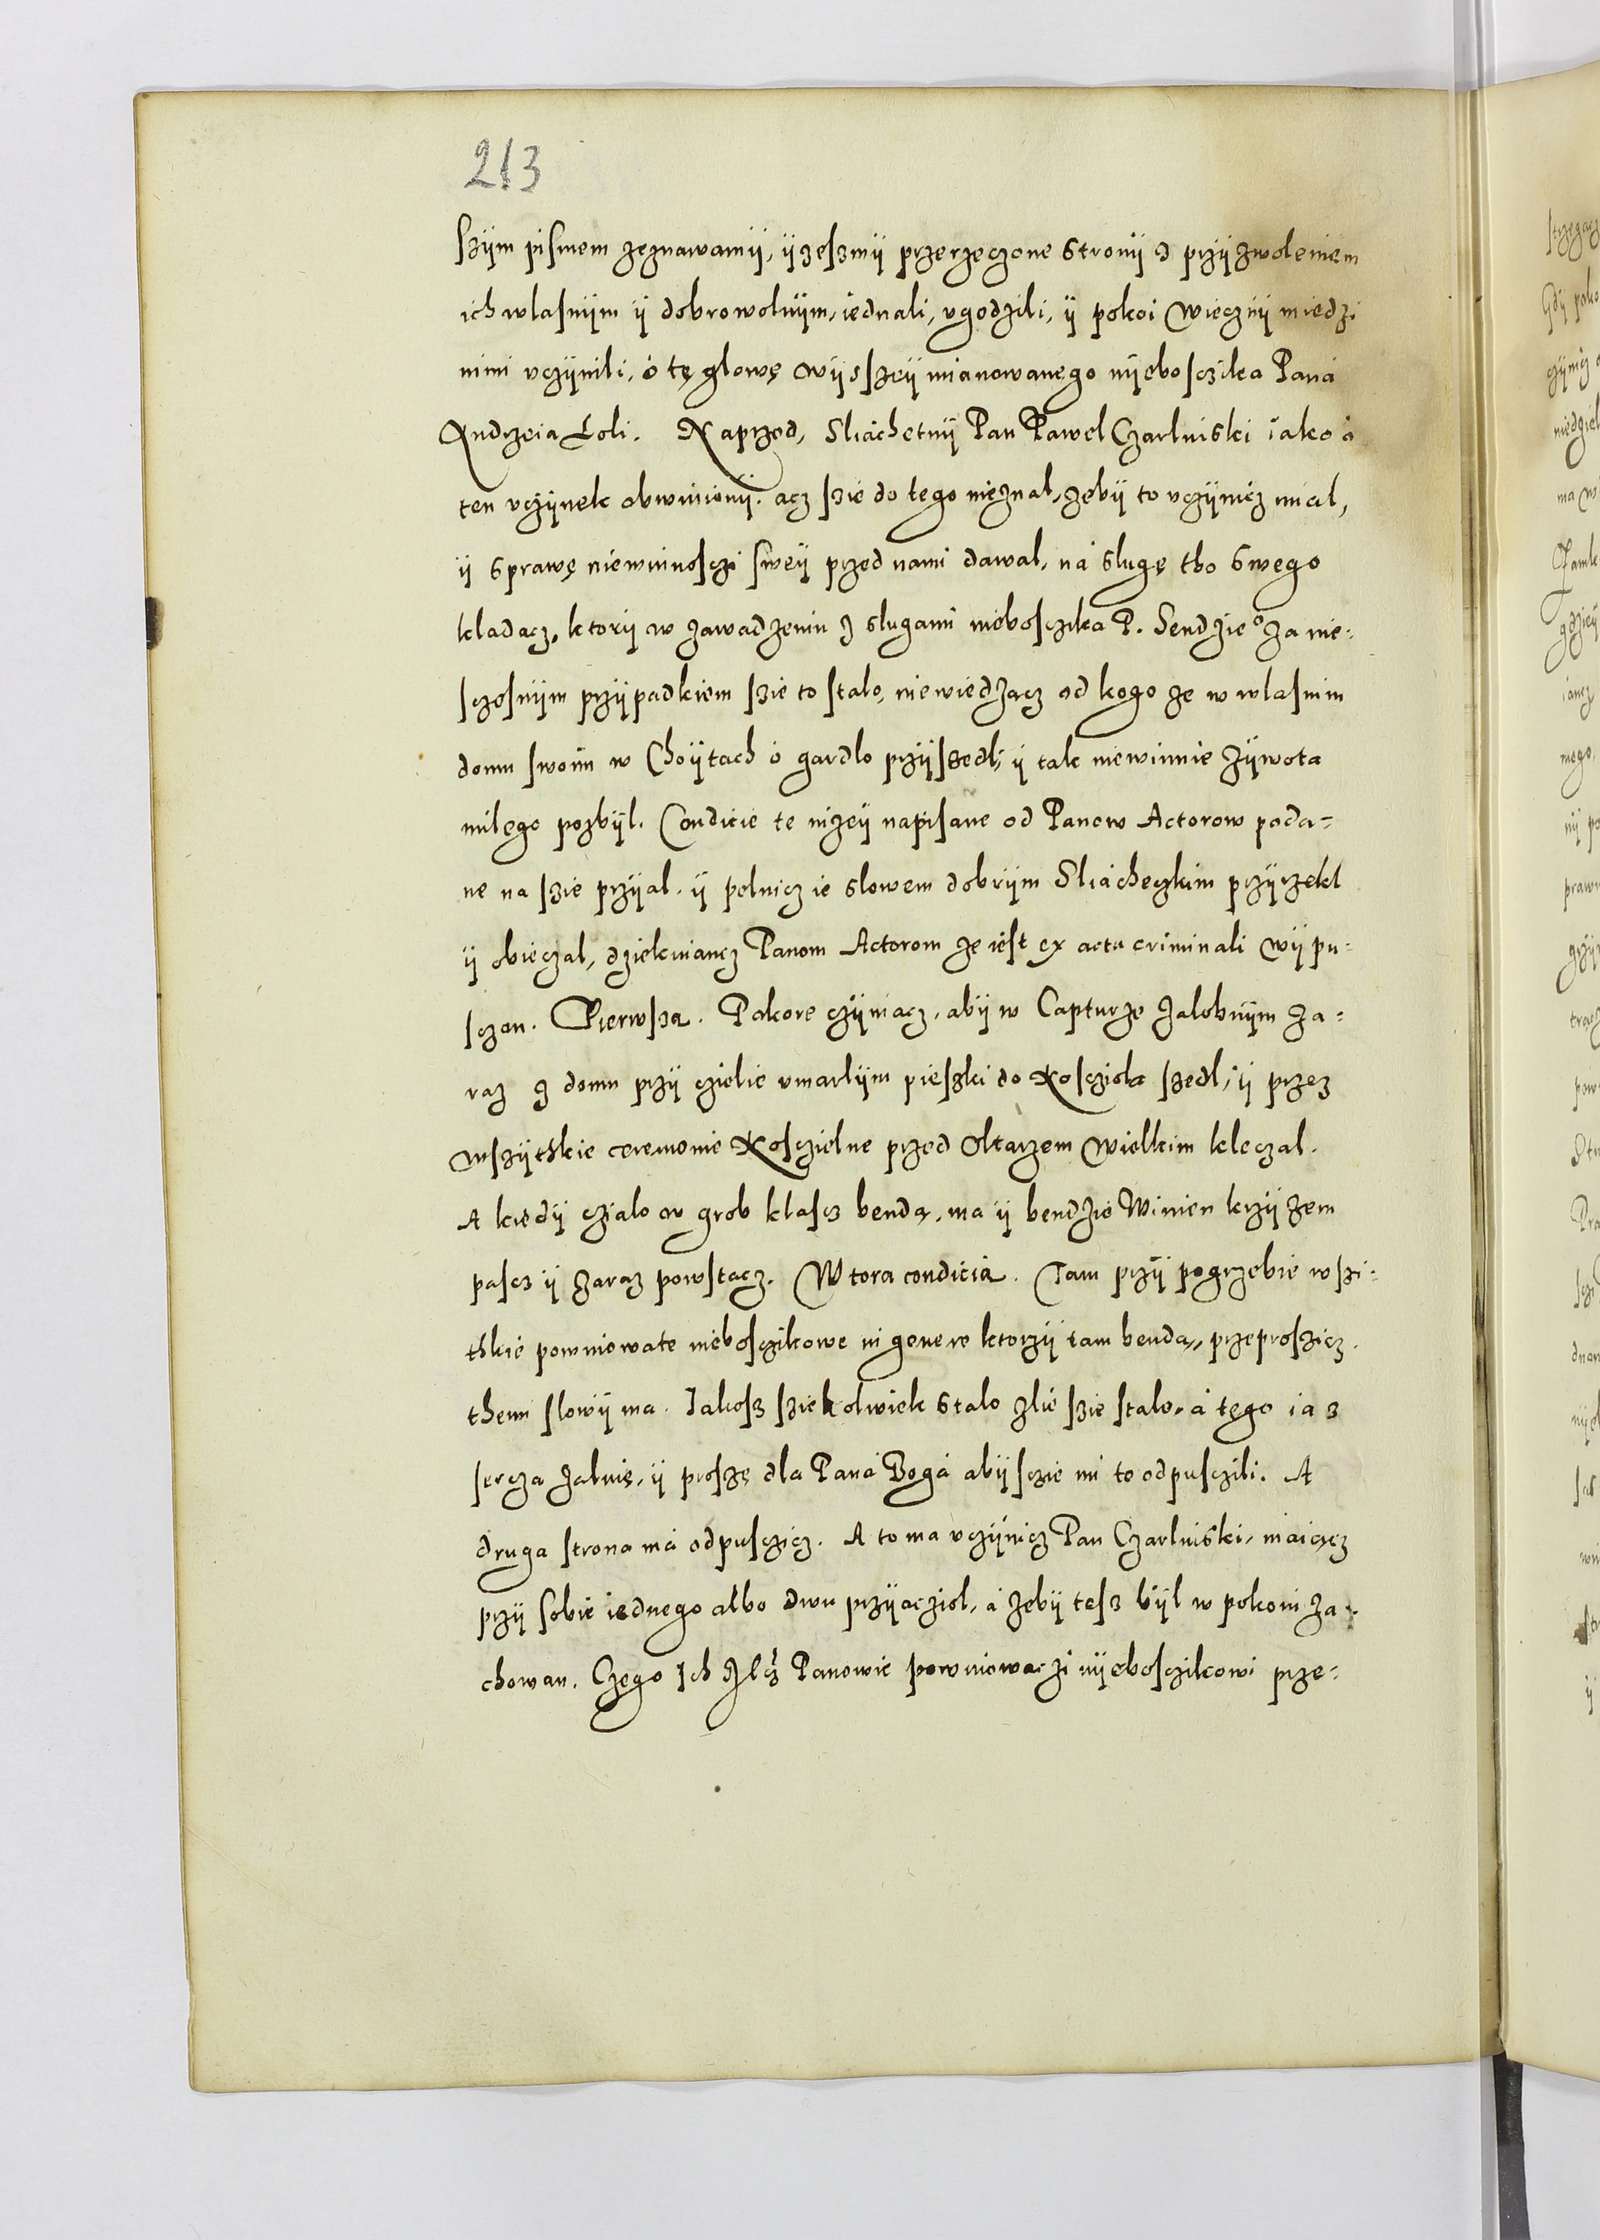 213
szÿm pismem zeznawamÿ, ÿzesmÿ przerzeczone Stronÿ z przÿzwoleniem
ich wlasnÿm ÿ dobrowolnÿm, iednali, vgodzili, ÿ pokoi wiecznÿ miedzi
nimi vczÿnili, o tę glowę wÿsszeÿ mianowanego nÿeboszczika Pana
Andrzeia Loli. Naprzod, Sliachetnÿ Pan Pawel Czarlinski iako o
ten vczÿnek obwinionÿ. acz szie do tego nieznal, zebÿ to vczÿnicz mial,
ÿ Sprawę niewinosczi sweÿ przed nami dawal, na Slugę tho Swego
kladacz, ktorÿ w zawadzeniu z Slugami nieboszczika P. Sendzie° za nie-
sczesnÿm przÿpadkiem szie to stalo, niewiedzacz od kogo ze w wlasnim
domu swoim w Choÿtach o gardlo przÿszedl, ÿ tak niewinnie zÿwota
milego pozbÿl. Condicie te nizeÿ napisane od Panow Actorow poda-
ne na szie przÿal. ÿ pelnicz ie Slowem dobrÿm Sliacheczkim przÿrzekl
ÿ obieczal, dziekuiancz Panom Actorom ze iest ex actu criminali wÿpu-
sczon. Pierwsza. Pokore czÿniacz, abÿ w Capturze zalobnÿm za-
raz z domu przÿ czielie vmarlÿm pieszki do Kosciola szedl, ÿ przez
wszÿthkie ceremonie Kosczielne przed Oltarzem Wielkim kleczal.
A kiedÿ czialo w grob klascz bendą, ma ÿ bendzie Winien krzÿzem
pascz ÿ zaraz powstacz. Wtora condicia. Tam przÿ pogrzebie wszi-
thkie powniowate nieboszczikowe in genere ktorzÿ tam bendą, przeproszicz.
themi slowÿ ma. Iakosz sziekolwiek Stalo zlie szie stalo, a tego ia z
sercza zaluię, ÿ proszę dla Pana Boga abÿsczie mi to odpusczili. A
druga strona ma odpusczicz. A to ma vczÿnicz Pan Czarlinski, maiącz
przÿ sobie iednego albo dwu przÿacziol, a zebÿ tesz bÿl w pokoiu za-
chowan. Czego Ich Panowie powniowaczi nÿeboszczikowi prze-